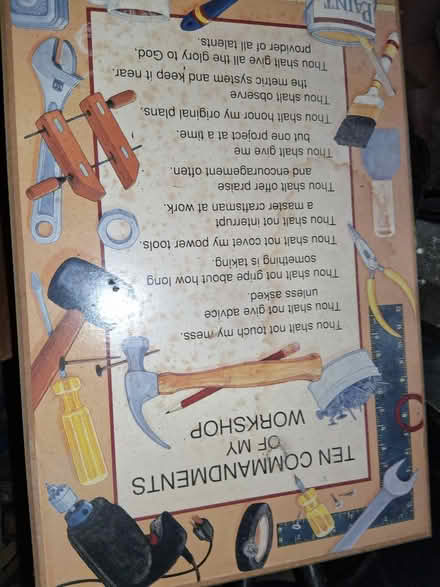 TEN COMMANDMENTS
OF MY
WORKSHOP
Thou shalt not touch my mess.
Thou shalt not give advice
unless asked.
Thou shalt not gripe about how long
something is taking.
Thou shalt not covet my power tools.
Thou shalt not interrupt
a master craftsman at work.
Thou shalt offer praise
and encouragement often.
Thou shalt give me
but one project at a time.
Thou shalt honor my original plans.
Thou shalt observe
the metric system and keep it near.
Thou shalt give all the glory to God,
provider of all talents.
PAINT